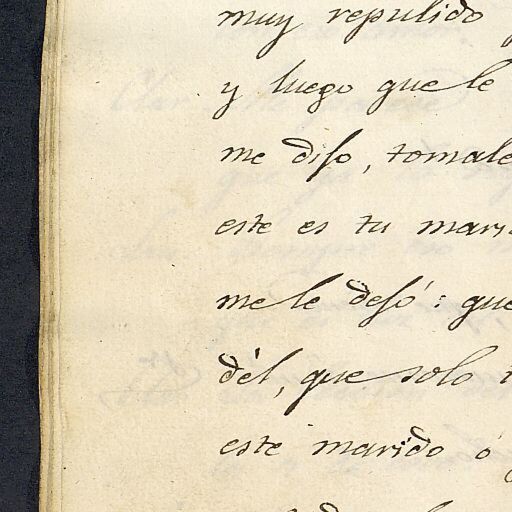 muy repulido
y luego que le
me dijo, tomale
este es tu mari
me le dejó: que
dèl, que solo
este marido ò